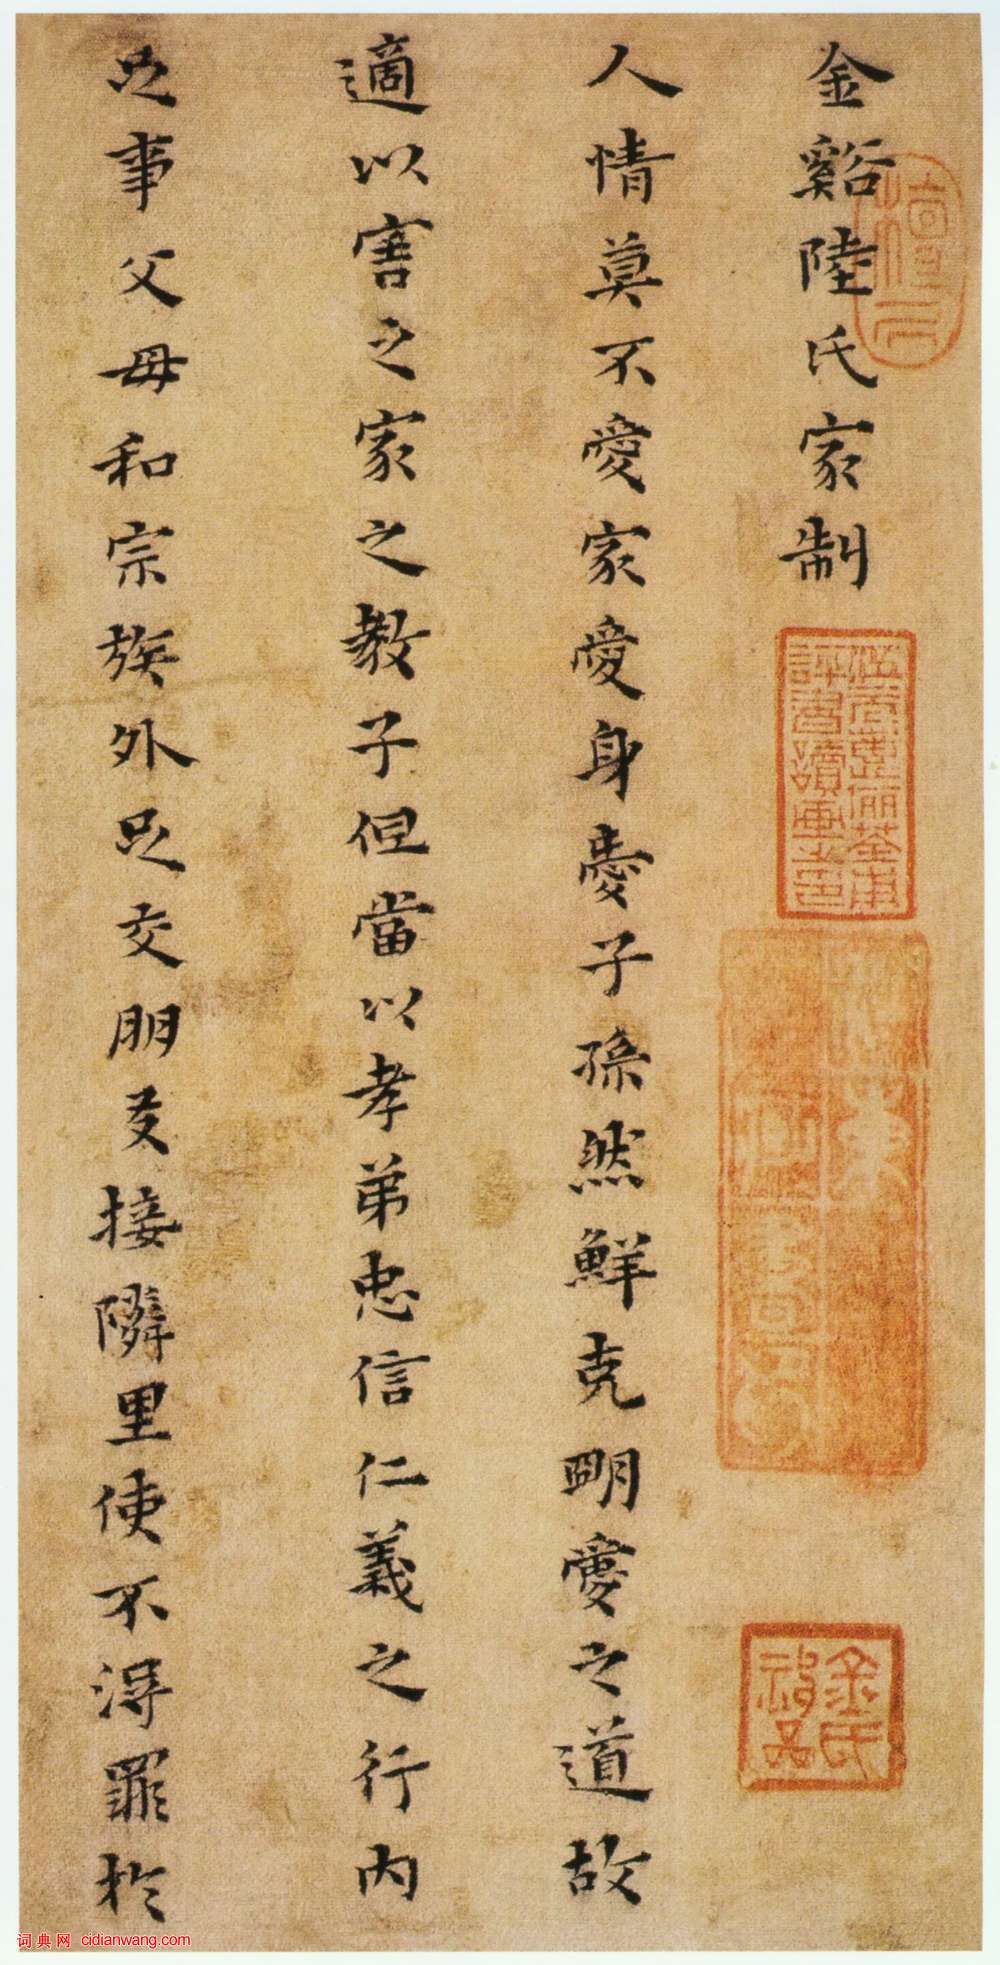 金谿陸氏家制
人情莫不愛家愛身愛子孫然鮮克明愛之道故
適以害之家之教子但當以孝弟忠信仁義之行内
足事父母和宗族外足交朋友接隣里使不淂罪於
金氏
詞典网 cidianwang.com